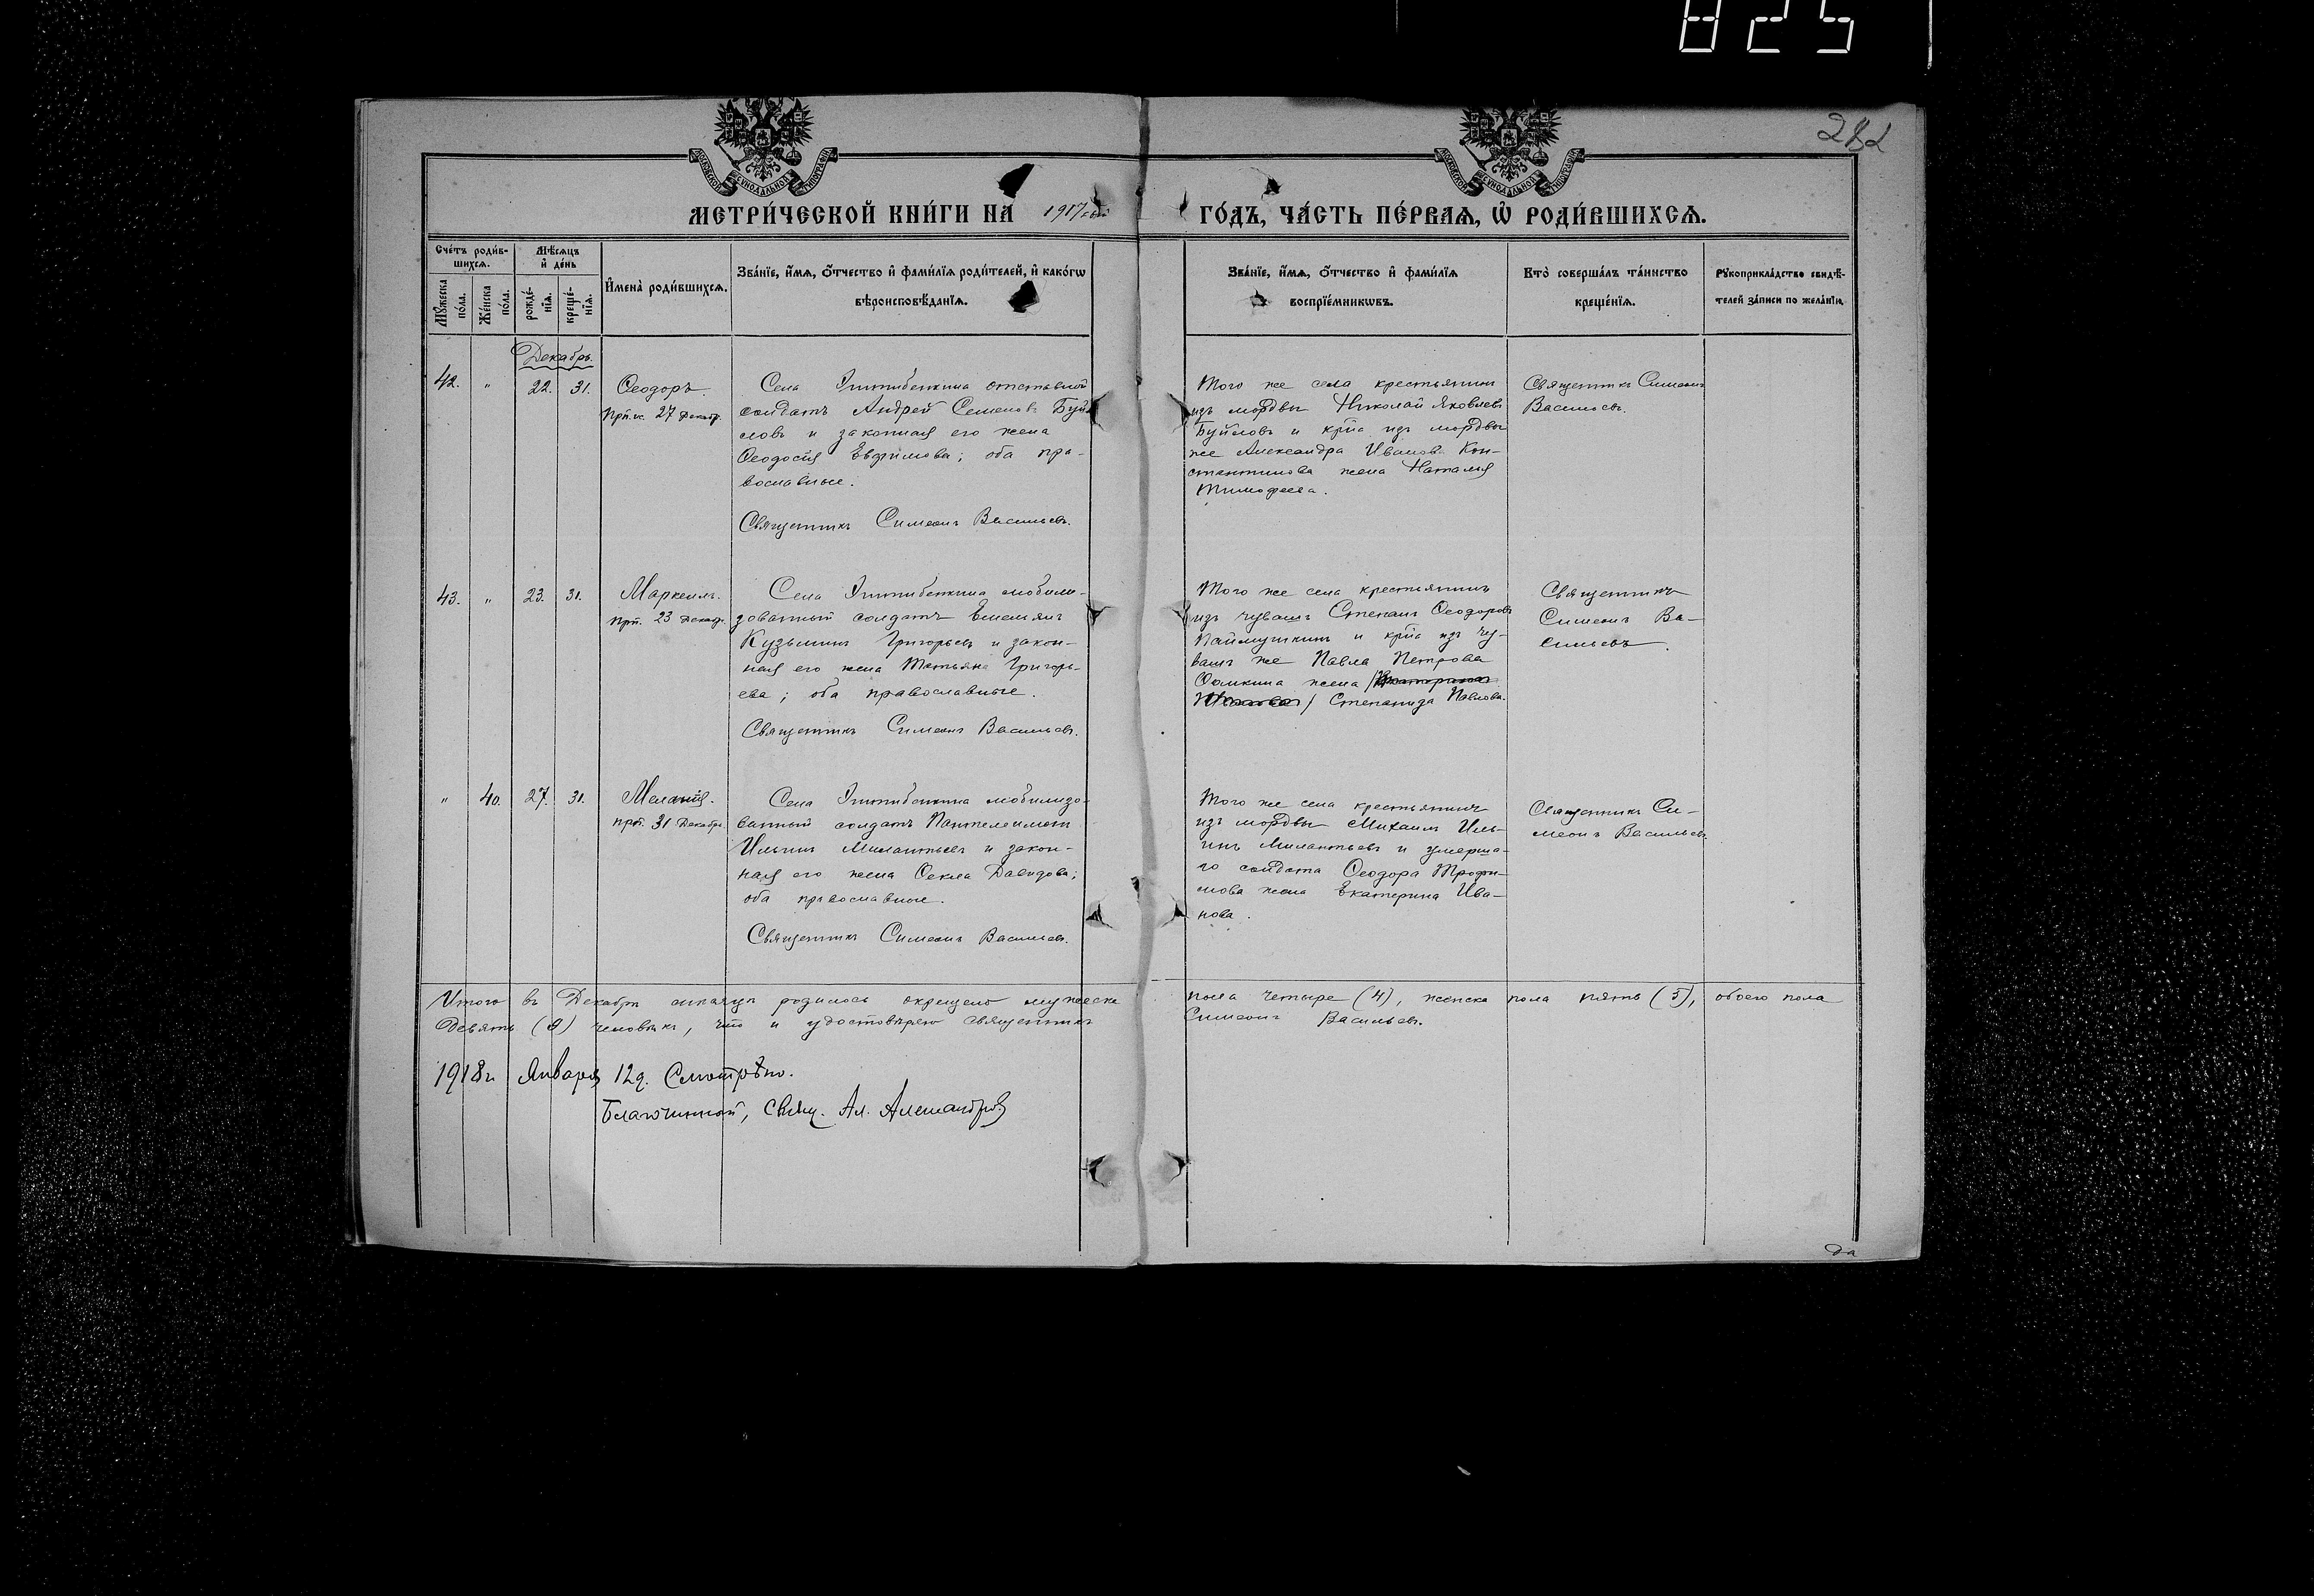 825
282
МОСКОВСКОЙ СУНОДАЛЬНОЙ ТИПОГРАФІИ
МОСКОВСКОЙ СУНОДАЛЬНОЙ ТИПОГРАФІИ
МЕТРИ́ЧЕСКОЙ КНИ́ГИ НА 1917
ГО́ДЪ, ЧА́СТЬ ПЕ́РВАѦ, Ѡ РОДИ́ВШИХСѦ.
Сче́тъ роди́в-
шихсѧ.
Мꙋ́жеска
по́ла.
Же́нска
по́ла.
Мѣ́сѧцъ
и҆ де́нь
рожде́-
нїѧ.
креще́-
нїѧ.
И҆мена̀ роди́вшихсѧ.
Зва́нїе, и҆́мѧ, ѻ҆́тчество и҆ фами́лїѧ роди́телей, и҆ како́гѡ
вѣроисповѣ́данїѧ.
Зва́нїе, и҆́мѧ, ѻ҆́тчество и҆ фами́лїѧ
воспрїе́мникѡвъ.
Кто̀ соверша́лъ та́инство
креще́нїѧ.
Рꙋкоприкла́дство свидѣ́-
телей за́писи по жела́нїю.
Декабрь.
42. " 22. 31.
Ѳеодоръ.
27 Декабр.
Села отставной
солдатъ Андрей Семеновъ Буй
ловъ и законная его жена
Ѳеодосія Евфимова; оба пра-
вославные.
Священникъ Симеонъ Васильевъ.
Того же села крестьянинъ
изъ мордвы Николай Яковлевъ
Буйловъ и кр-на изъ мордвы
же Александра Иванова Кон-
стантинова жена Наталія
Тимофеева.
Священникъ Симеонъ
Васильевъ.
43. " 23. 31.
Маркеллъ.
прп. 23 Декабр.
Села мобили-
зованный солдатъ Емельянъ
Кузьминъ Григорьевъ и закон-
ная его жена Татьяна Григорь-
ева; оба православные.
Священникъ Симеонъ Васильевъ.
Того же села крестьянинъ
изъ чувашъ Степанъ Ѳеодоровъ
Паймушкинъ и кр-на изъ чу-
вашъ же Павла Петрова
Ѳомкина жена
Степанида Павлова.
Священникъ
Симеонъ Ва-
сильевъ.
" 40. 27. 31.
Меланія.
прп. 31 Декабр.
Села мобилизо-
ванный солдатъ Пантелеимонъ
Ильинъ Милантьевъ и закон-
ная его жена Ѳекла Давидова;
оба православные.
Священникъ Симеонъ Васильевъ.
Того же села крестьянинъ
изъ мордвы Михаилъ Иль-
инъ Милантьевъ и умерша-
го солдата Ѳеодора Трофи-
мова жена Екатерина Ива-
нова.
Священникъ Си-
меонъ Васильевъ.
Итого въ Декабрѣ мѣсяцѣ родилось окрещено мужеска пола четыре (4), женска пола пять (5), обоего пола
девять (9) человѣкъ, что и удостовѣряю священникъ Симеонъ Васильевъ.
1918г. Января 12д. Смотрѣно.
Благочинный, свящ. Ал. Александровъ